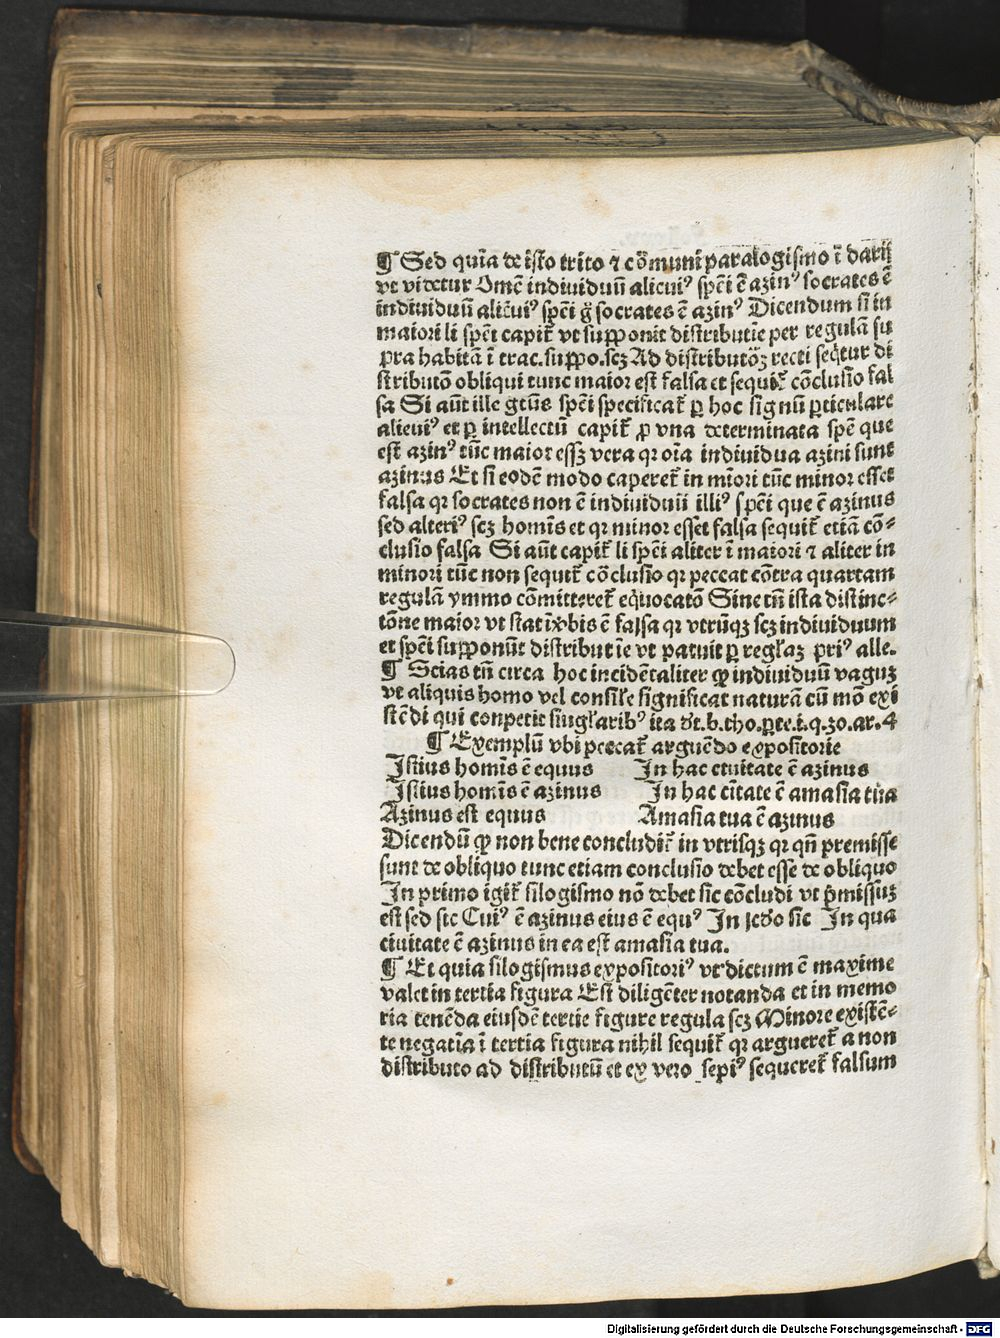 ¶ Sed quia de isto trito ⁊ cõmuni paralogismo ĩ darij
vt videtur Omẽ indiuiduũ alicuiꝰ spẽi ẽ azinꝰ socrates ẽ
indiuiduũ alicuiꝰ spẽi g̃ socrates ẽ azinꝰ Dicendum si in
maiori li spẽi capit̃ vt supponit distributiẽ per regulã su
pra habitã ĩ trac. suppo. scꝫ Ad distributõꝫ recti seq̃tur di
stributõ obliqui tunc maior est falsa et sequit̃ cõclusio fal
sa Si aũt ille gt̃ũs spẽi specificat̃ ꝑ hoc signũ ꝑticulare
alicuiꝰ et ꝑ intellectũ capit̃ ꝓ vna determinata spẽ que
est azinꝰ tũc maior essꝫ vera qꝛ oĩa indiuidua azini sunt
azinus Et si eodẽ modo caperet̃ in miori tũc minor esset
falsa qꝛ socrates non ẽ indiuiduũ illiꝰ spẽi que ẽ azinus
sed alteriꝰ scꝫ homĩs et qꝛ minor esset falsa sequit̃ etiã cõ⸗
clusio falsa Si aũt capit̃ li spẽi aliter ĩ maiori ⁊ aliter in
minori tũc non sequit̃ cõclusio qꝛ peccat cõtra quartam
regulã ymmo cõmitteret̃ eq̃uocatõ Sine tñ ista distinc⸗
tõne maior vt stat ĩ v̾bis ẽ falsa qꝛ vtrũqꝫ scꝫ indiuiduum
et spẽi supponũt distributiẽ vt patuit ꝑ regl̃aꝫ priꝰ alle.
¶ Scias tñ circa hoc incidẽtaliter ꝙ indiuiduũ vaguꝫ
vt aliquis homo vel consil̃e significat naturã cũ mõ exi
stẽdi qui conpetit singl̃aribꝰ ita dt̃. b. tho. ꝑte. i. q. 30. ar. 4
¶ Exemplũ vbi peccat̃ arguẽdo expositorie
Istius homĩs ẽ equus In hac ciuitate ẽ azinus
Istius homĩs ẽ azinus In hac cĩtate ẽ amasia tua
Azinus est equus Amasia tua ẽ azinus
Dicendũ ꝙ non bene concludit̃ in vtrisqꝫ qꝛ qñ premisse
sunt de obliquo tunc etiam conclusio debet esse de obliquo
In primo igit̃ silogismo nõ debet sic cõcludi vt p̃missuꝫ
est sed sic Cuiꝰ ẽ azinus eius ẽ equꝰ In scd̃o sic In qua
ciuitate ẽ azinus in ea est amasia tua.
¶ Et quia silogismus expositoriꝰ vt dictum ẽ maxime
valet in tertia figura Est diligẽter notanda et in memo
ria tenẽda eiusdẽ tertie figure regula scꝫ Minore existẽ⸗
te negatĩa ĩ tertia figura nihil sequit̃ qꝛ argueret̃ a non
distributo ad distributũ et ex vero sepiꝰ sequeret̃ falsum
Digitalisierung gefördert durch die Deutsche Forschungsgemeinschaft - DFG